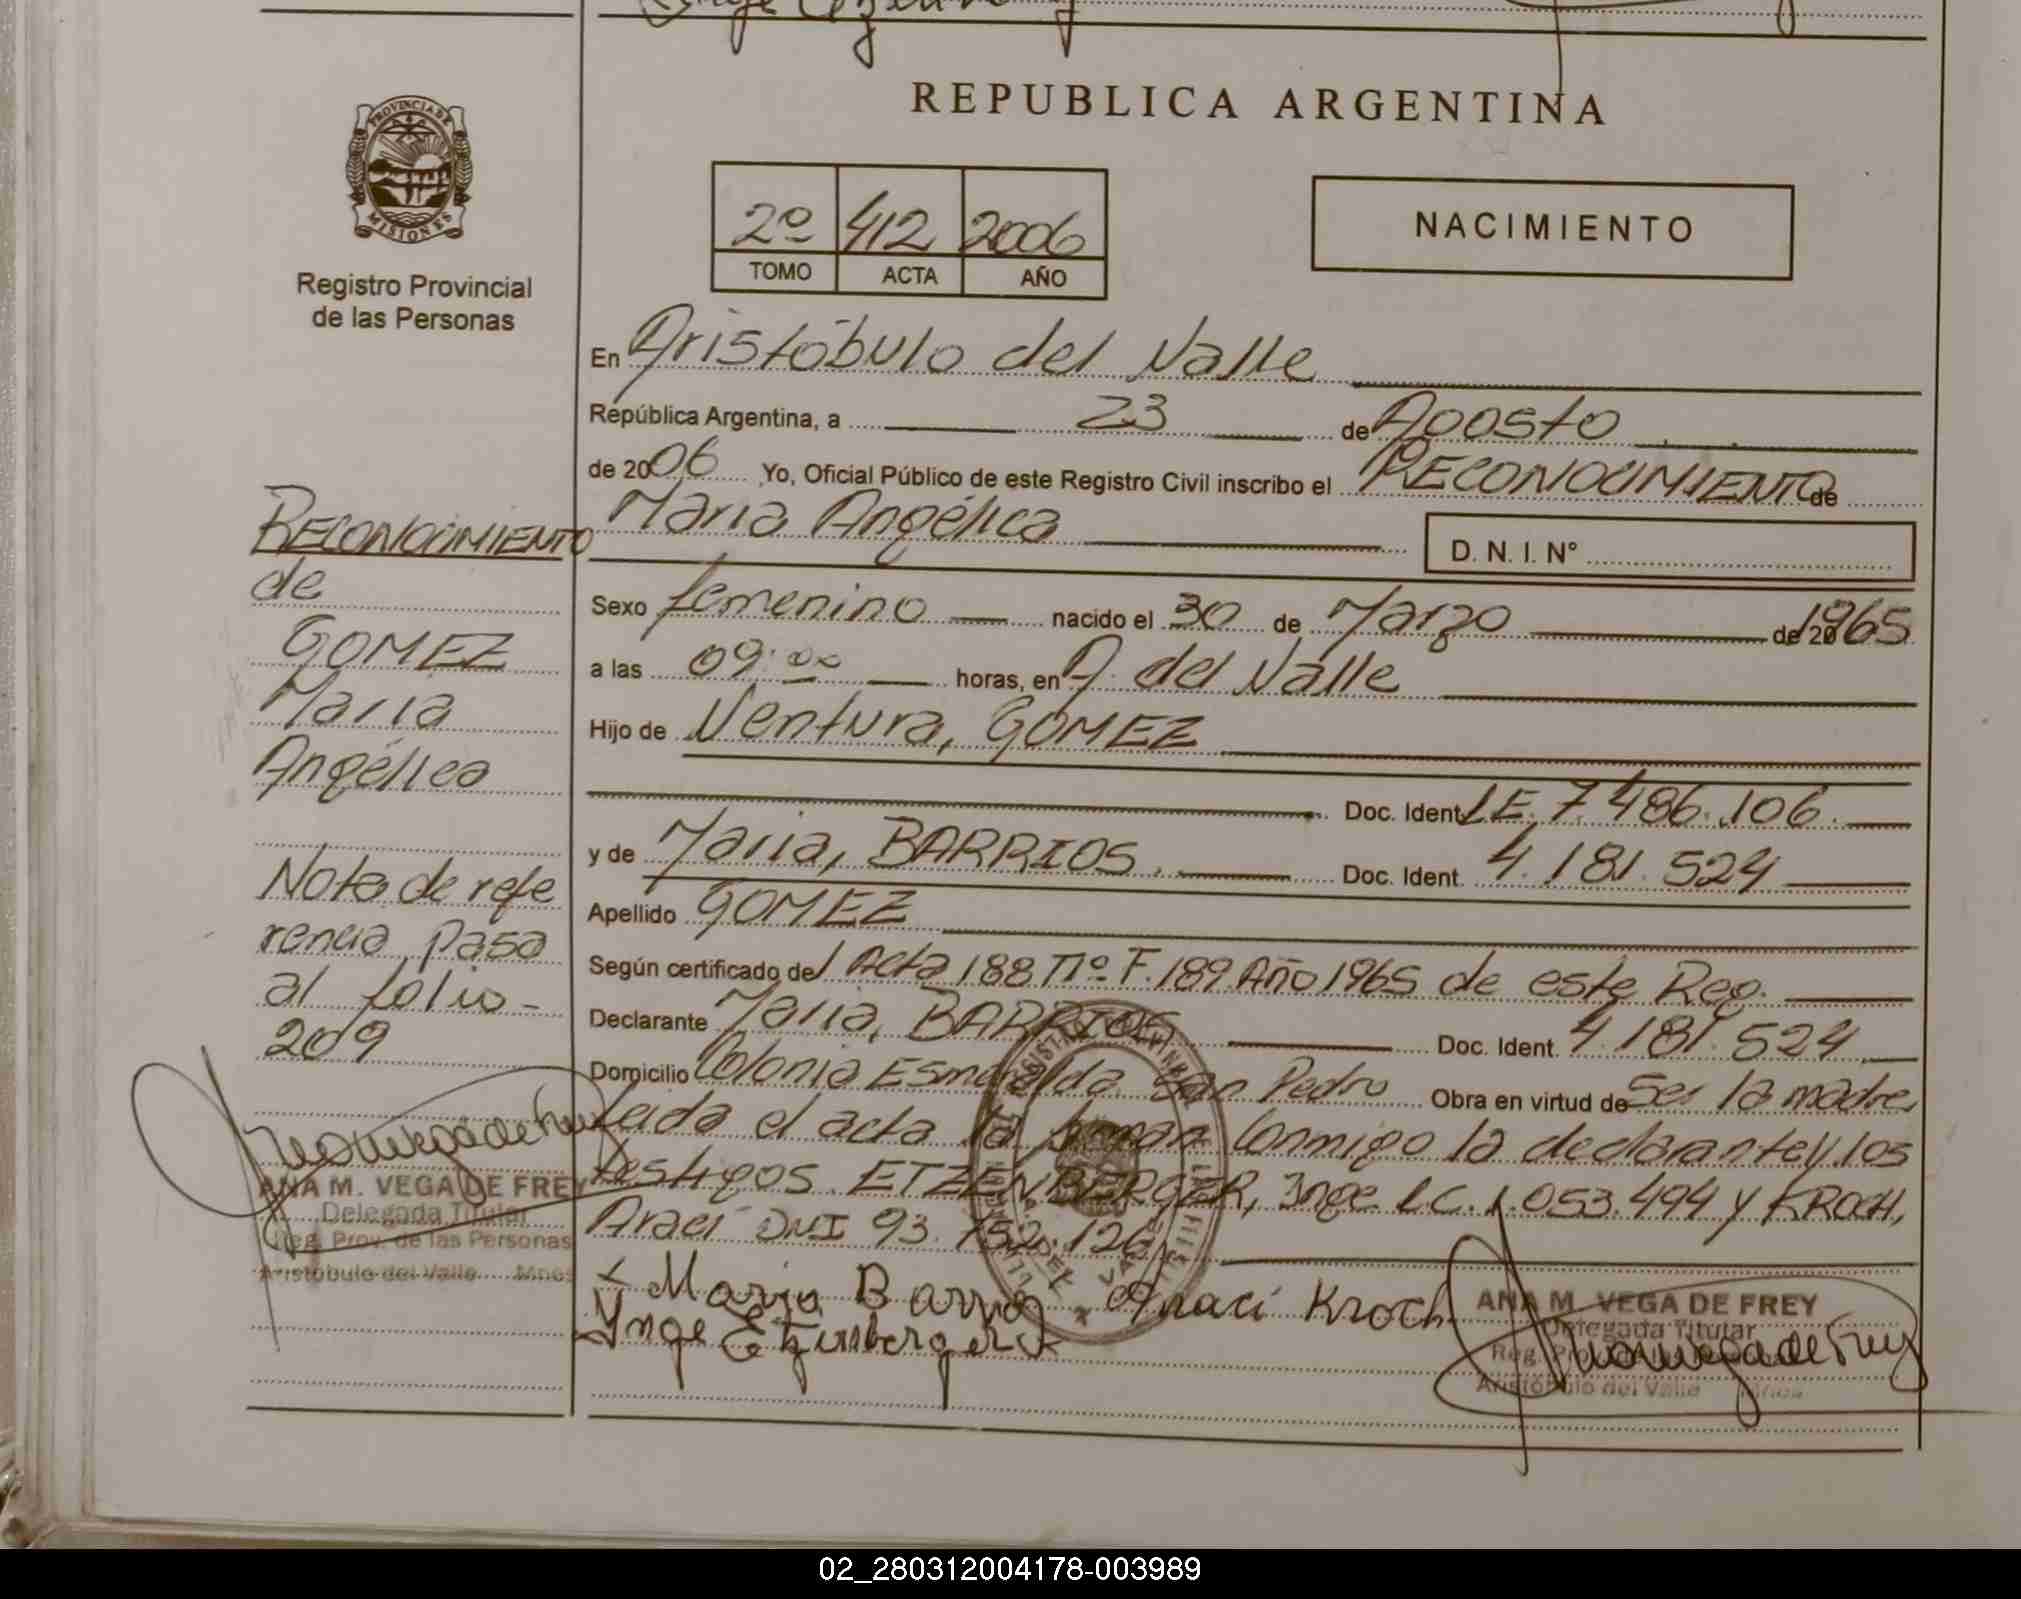 REPUBLICA ARGENTINA
PROVINCIA DE
MISIONES
Registro Provincial
de las Personas
2º 412 2006
TOMO ACTA AÑO
NACIMIENTO
En Aristóbulo del Valle
República Argentina, a 23 de Agosto
de 2006 Yo, Oficial Público de este Registro Civil inscribo el RECONOCIMIENTO de
Maria Angélica D. N. I. N°
Sexo femenino nacido el 30 de Marzo de 1965
a las 09:00 horas, en A. del Valle
Hijo de Ventura, GOMEZ
Doc. Ident. LE. 7.486.106.
y de Maria, BARRIOS. Doc. Ident. 4.181.524
Apellido GOMEZ
Según certificado del Acta 188 Tº F. 189 Año 1965 de este Reg.
Declarante Maria, BARRIOS Doc. Ident. 4.181.524
Domicilio Colonia Esmeralda San Pedro Obra en virtud de Ser la madre
Leida el acta la firman Conmigo la declarante y los
testigos ETZENBERGER, Inge LC. 1.053.494 y KROCH,
Araci DNI 93.752.126
Maria Barrios Araci Kroch
Inge Etzenberger
ANA M. VEGA DE FREY
Delegada Titular
Reg. Prov.
Aristóbulo del Valle
RECONOCIMIENTO
de
GOMEZ
Maria
Angélica
Nota de refe
rencia pasa
al folio-
209
ANA M. VEGA DE FREY
Delegada Titular
Reg. Prov. de las Personas
Aristóbulo del Valle Mnes
02_280312004178-003989